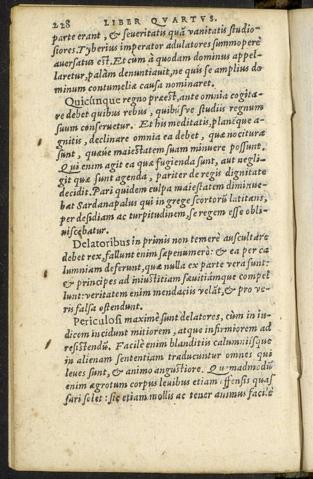 228 LIBER QVARTVS.
parte erant, & seueritatis quã vanitatis studio-
siores. Tyberius imperator adulatores summoperè
auersatus est. Et cùm à quodam dominus appel-
laretur, palàm denuntiauit, ne quis se amplius do
minum contumeliæ causa nominaret.
Quicunque regno præest, ante omnia cogita-
re debet quibus rebus, quibusve studiis regnum
suum conseruetur. Et his meditatis, planéque a-
gnitis, declinare omnia ea debet, quæ nocitura
sunt, quæue maiestatem suam minuere possunt.
Qui enim agit ea quæ fugienda sunt, aut negli-
git quæ sunt agenda, pariter de regis dignitate
decidit. Pari quidem culpa maiestatem diminue-
bat Sardanapalus qui in grege scortorũ latitans,
per desidiam ac turpitudinem, se regem esse obli-
uiscebatur.
Delatoribus in primis non temerè auscultare
debet rex, fallunt enim sæpenumerò: & ea per ca
lumniam deferunt, quæ nulla ex parte vera sunt:
& principes ad iniustitiam sæuitiámque compel
lunt: veritatem enim mendaciis velãt, & pro ve-
ris falsa ostendunt.
Periculosi maximè sunt delatores, cùm in iu-
dicem incidunt mitiorem, atque infirmiorem ad
resistendũ. Facilè enim blanditiis calumniisque
in alienam sententiam traducuntur omnes qui
leues sunt, & animo angustiore. Quemadmodũ
enim ægrotum corpus leuibus etiam offensis quas
sari solet: sic etiam mollis ac tener animus facilè